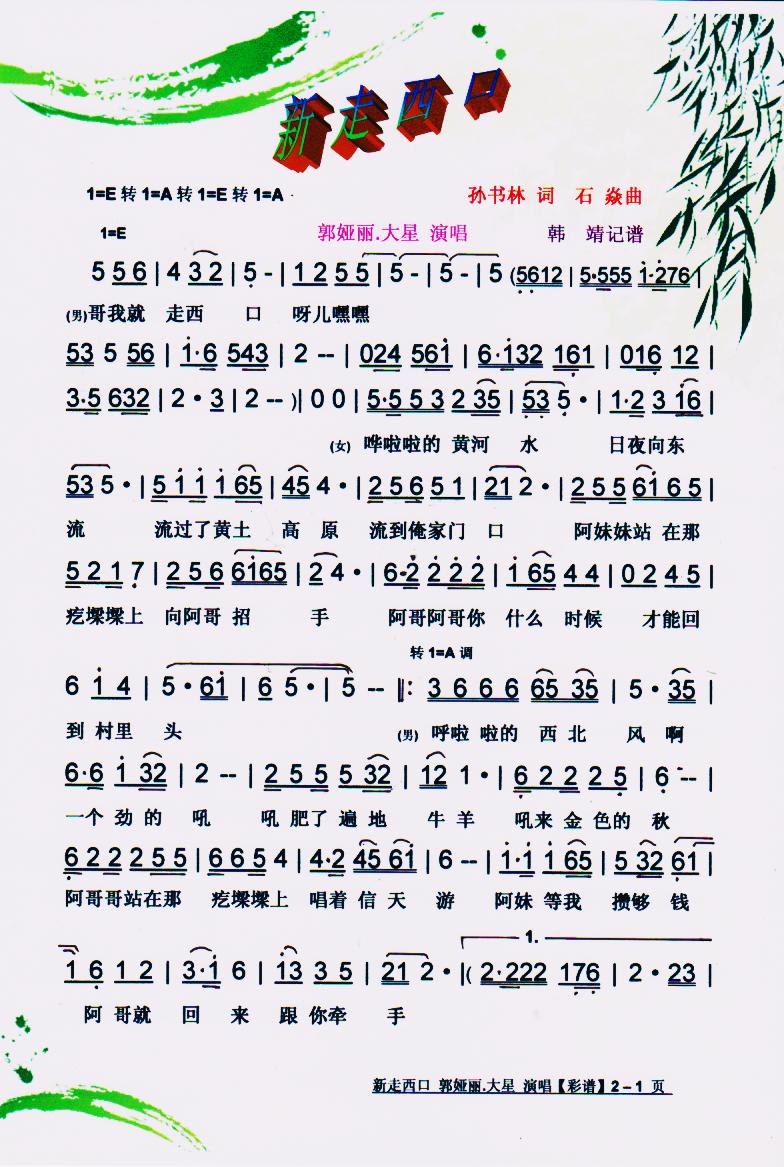 新走西口
1=E 转 1=A 转 1=E 转 1=A
孙书林 词 石 焱曲
1=E
郭娅丽.大星 演唱
韩 靖记谱
5 5 6 | 4 32 | 5 - | 1 2 5 5 | 5 - | 5 - | 5 (5612 | 5·555 1·276 |
(男)哥我就 走西 口 呀儿嘿嘿
53 5 56 | 1·6 543 | 2 -- | 024 561 | 6·132 161 | 016 12 |
3·5 632 | 2·3 | 2 -- )| 0 0 | 5·5 5 3 2 35 | 53 5· | 1·2 3 16 |
(女) 哗啦啦的 黄河 水 日夜向东
53 5· | 5 1 1 1 65 | 45 4· | 2 5 6 5 1 | 21 2· | 2 5 5 61 6 5 |
流 流过了黄土 高 原 流到俺家门 口 阿妹妹站 在那
5 2 1 7 | 2 5 6 6165 | 2 4· | 6·2 2 2 2 | 1 65 4 4 | 0 2 4 5 |
疙墚墚上 向阿哥 招 手 阿哥阿哥你 什么 时候 才能回
转 1=A 调
6 1 4 | 5·61 | 6 5· | 5 -- ‖: 3 6 6 6 65 35 | 5·35 |
到 村里 头 (男) 呼啦 啦的 西 北 风 啊
6·6 1 32 | 2 -- | 2 5 5 5 32 | 12 1· | 6 2 2 2 5 | 6 -- |
一个 劲 的 吼 吼 肥了 遍 地 牛 羊 吼来 金 色的 秋
6 2 2 2 5 5 | 6 6 5 4 | 4·2 45 61 | 6 -- | 1·1 1 65 | 5 32 61 |
阿哥哥站在那 疙墚墚上 唱着 信 天 游 阿妹 等我 攒够 钱
1 6 1 2 | 3·1 6 | 13 3 5 | 21 2· |( 2·222 176 | 2·23 |
1.
阿 哥就 回 来 跟 你牵 手
新走西口 郭娅丽.大星 演唱【彩谱】2－1 页